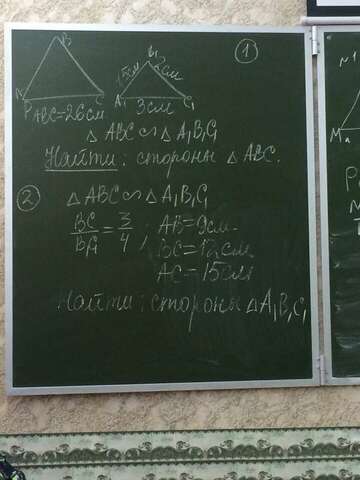 ①
B
B₁
1,5см 2см
A C A₁ 3см C₁
P ABC=26см
△ ABC ∽ △ A₁B₁C₁
Найти: стороны △ ABC.
② △ ABC ∽ △ A₁B₁C₁
BC/B₁C₁ = 3/4; AB=9см
BC=12см
AC=15см
Найти: стороны △ A₁B₁C₁
N1
M